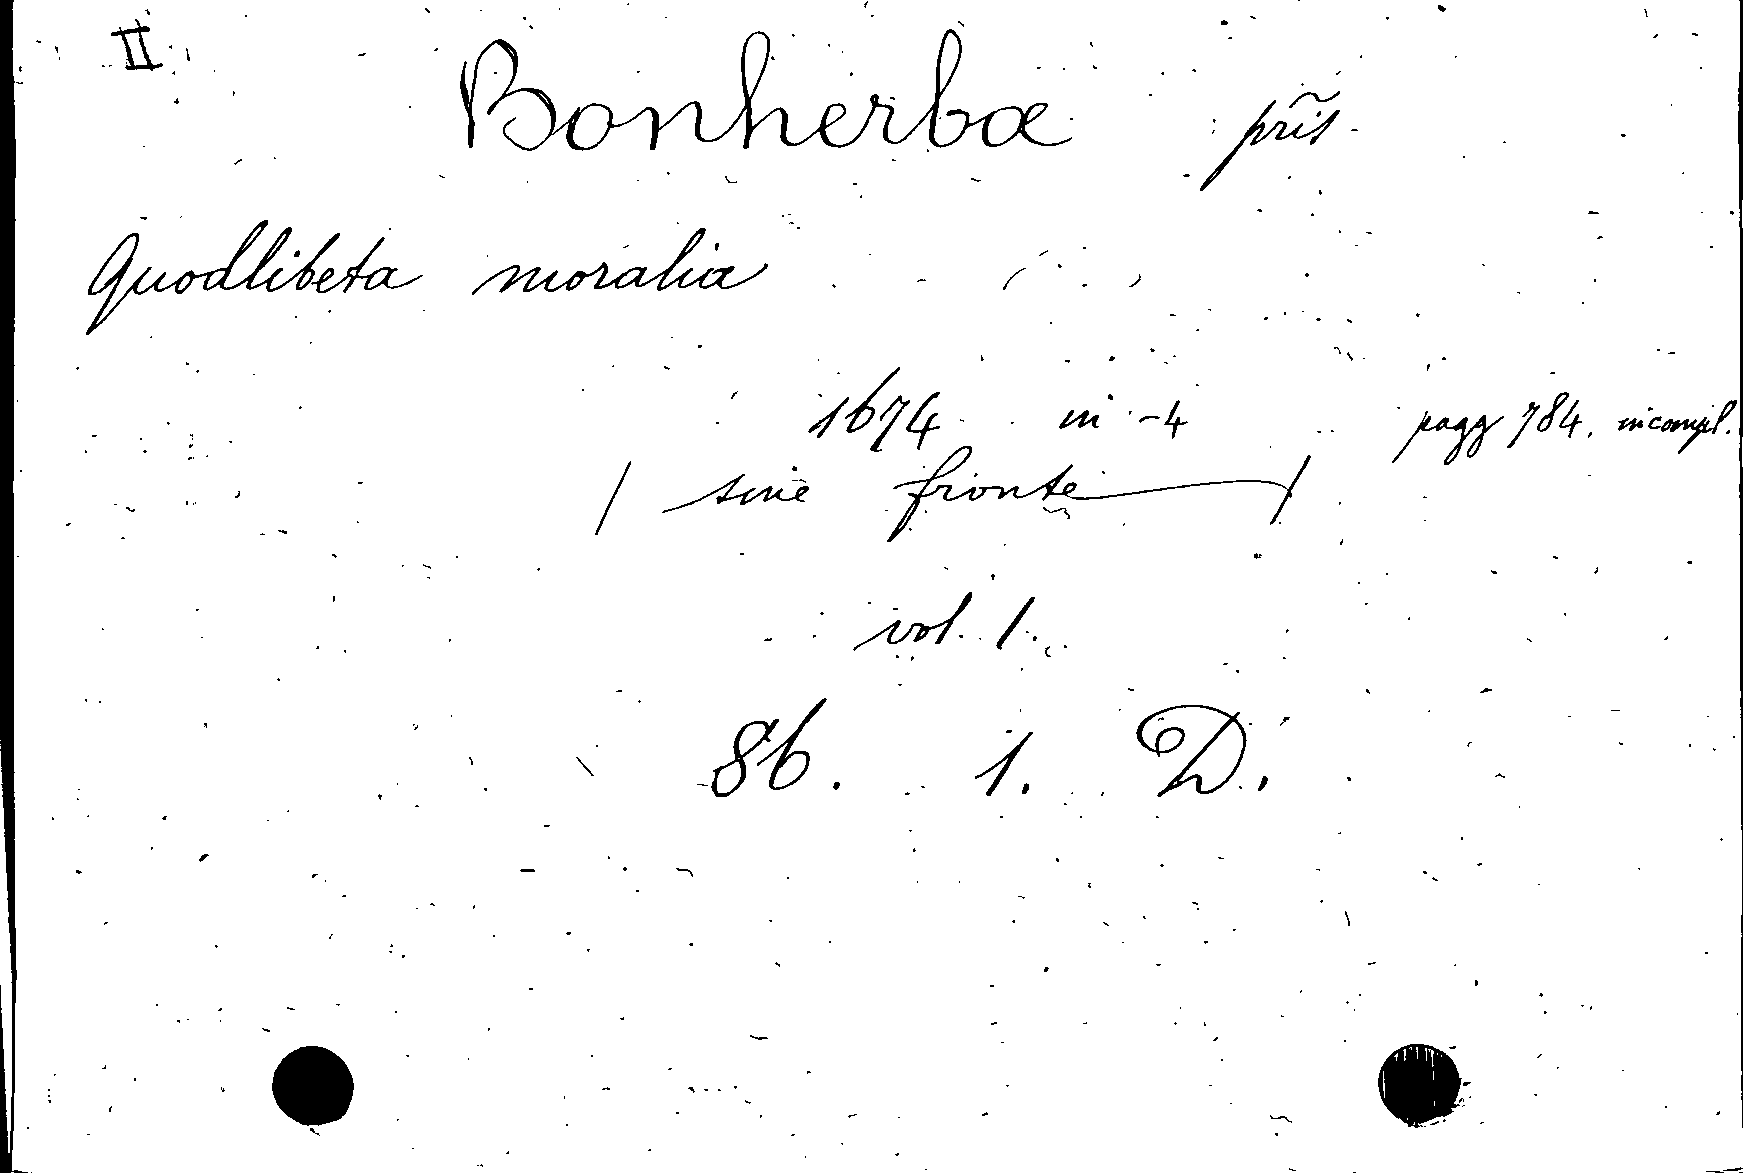 II
Bonherba pr̃is
Quodlibeta moralia
1674 in -4 pagg 784. incompl.
/ sine fronte /
vol. 1.
86. 1. D.